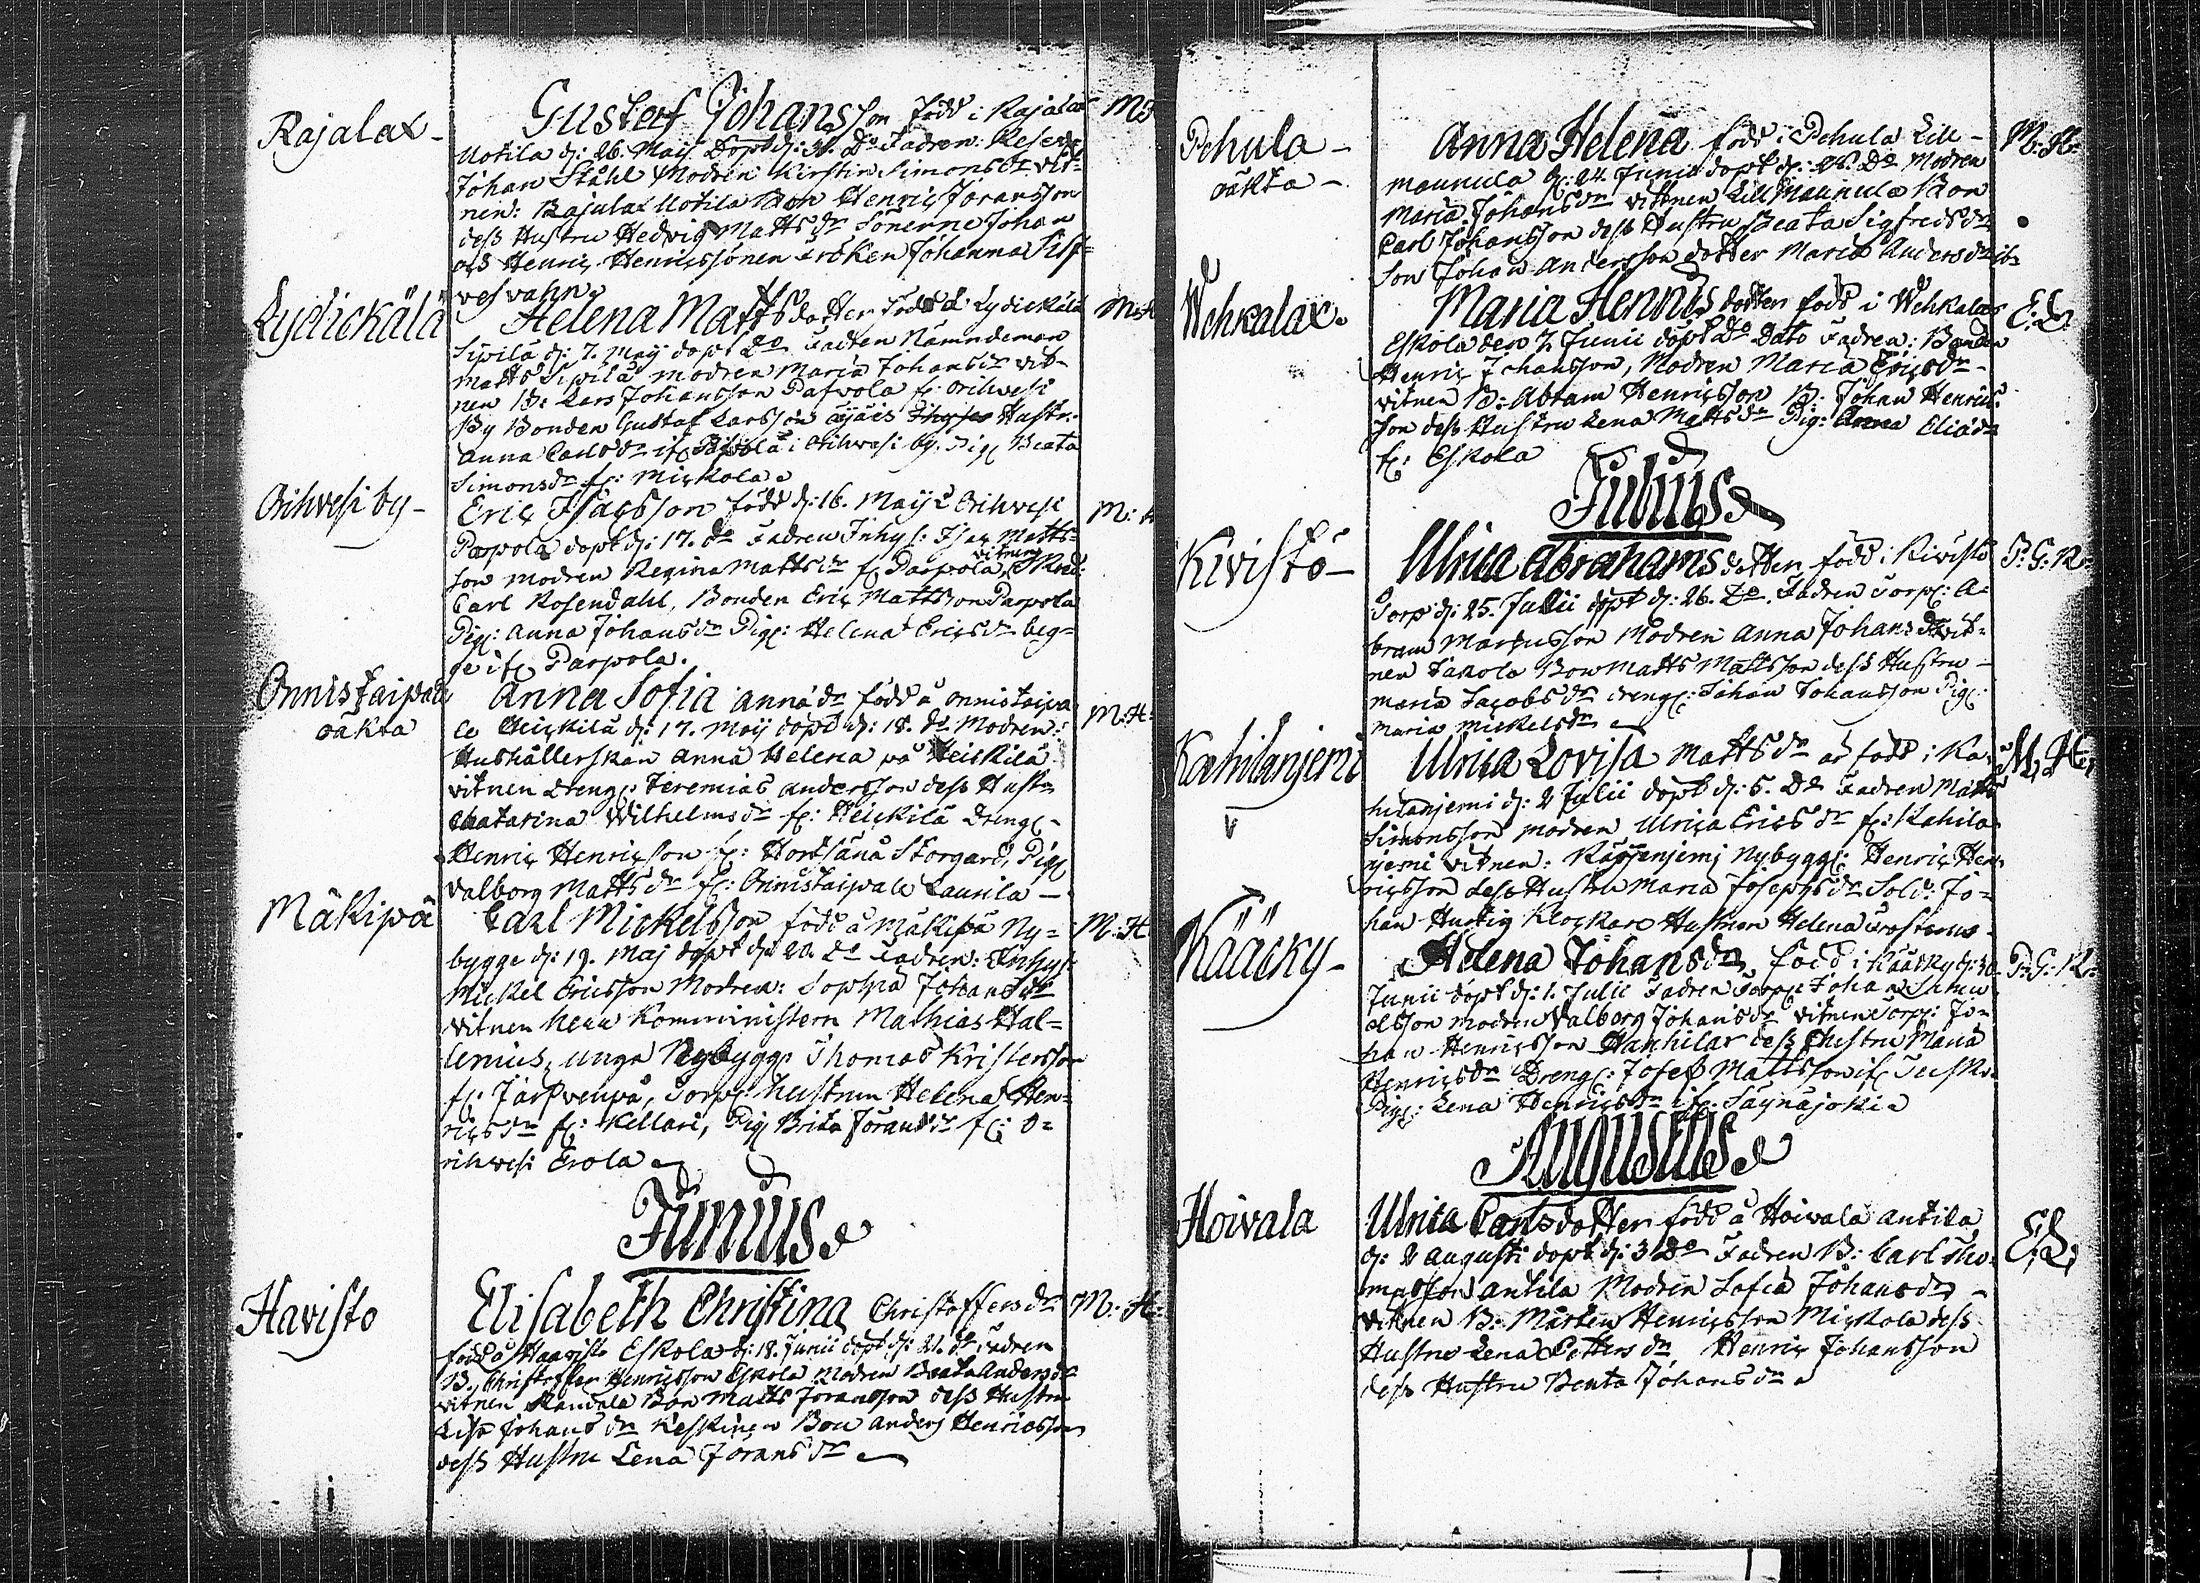 Rajalax-
Gustaf Johansson född i Rajalax
Uotila d: 26. Maji Döpt d: 31. Do Fadren: Reserv
Johan Ståhl Modren Kirstin Simonsdr Vit-
nen: Rajalax Uotila Bon Henric Joransson
dess Hustru Hedvig Mattsdr Sönerne Johan
och Henric Henricssöner Fröken Johanna Silf-
vesvahn.
Lydickälä
Helena Mattsdotter född i Lydickälä
Sipilä d: 7. Maji döpt Do Fadren Nämndeman
Matts Sipilä modren Maria Johansdr vit-
nen B: Lars Johansson Papvola fr: Orihvesi
By Bonden Gustaf Larsson Hustr:
Anna Carlsdr if: i Orihvesi by. Pig: Beata
Simonsdr fr: Mickola.
Orihvesi by-
M:
Eric Isacsson född d: 16. Maji i Orihvesi
Parpola döpt d: 17. do Fadren Inhys: Isac Matts-
son modren Regina Mattsdr fr Parpola, vitnen
Carl Rosendahl, Bonden Eric Mattsson Parpola
Pig: Anna Johansdr Pig: Helena Ericsdr beg-
ge if: Parpola.
Onnistaipale
oäkta
Anna Sofia Annadr född å Onnistaipa
le Heickilä d: 17. Maji döpt d: 18. do Modren:
Hushållerskan Anna Helena på Heickilä
vitnen Dreng: Jeremias Andersson dess Hustr
Chatarina Wilhelmsdr fr: Heickilä Dreng:-
Henric Henricsson fr: Storgård, Pig:
Valborg Mattsdr fr: Onnistaipale Laurila-
M: H:
Mäkipä
Carl Mickelsson född å Mäkipä Ny=
bygge d: 19. Maj döpt d: 20. Do Fadren: Inhys:
Mickel Ericsson Modren: Sophia Johansdr
vitnen Herr Komministern Mathias Hal-
lenius, unga Nybygg: Thomas Kristersson
fr: Järfvenpä, Torp: hustrun Helena Hen-
ricsdr fr: Kellari, Pig Brita Joransdr fr: O-
rihvesi Erola
M: H.
Junius
Havisto
Elisabeth Christina Christoffersdr
född å Haavisto Eskola d: 18. Junii döpt d: 21. do Fadren
B. Christoffer Henricsson Eskola Modren Beata Andersdr
vitnen Bon Matts Joransson dess Hustru
Lisa Johansdr Keskinen Bon Anders Henricsson
dess Hustru Lena Joransdr
M: H:
Pehula-
oäkta-
Anna Helena född i Pehula Lill-
maunula d: 24 Junii döpt d: 25. Do Modren
Maria Johansdr vittnen Lill Maunula Bon
Carl Johansson dess Hustru Beata Sigfredsdr
son Johan Andersson dotter Maria Andersdr ib=
M: H:
Wehkalax.
Maria Henricsdotter född i Wehkalax
Eskola den 7. Junii döpt Do Dato Fadren: Bonden
Henric Johansson, Modren Maria Ericsdr-
vitnen B: Abram Henricsson B: Johan Henrics-
son dess Hustru Lena Mattsdr Pig: Anna Eliädr
fr: Eskola
E: L:
Julius
Kivistö-
Ulrica Abrahamsdotter född i Kivistö
Torp d: 25. Julii döpt d: 26. Do. Fadren Torp: A-
bram Marcusson Modren Anna Johansdr vit-
nen Jakola Bon Matts Mattsson dess Hustru-
Maria Jacobsdr dreng: Johan Johansson Pig:
Maria Mickelsdr
P: G: K.
Kahilanjemi
Ulrica Lovisa Mattsdr är född i Ka-
hilanjemi d: 2 Julii döpt d: 5. Do Fadren Matts
Simonsson modren Ulrica Ericsdr fr: Kahila-
njemi vitnen: Nybygg: Henric Hen-
ricsson dess Hustru Maria Josephsdr Sold: Jo-
han Hurtig Klockare Hustrun Helena
M, H;
Kääcky-
Helena Johansdr född i Kääcky d: 30
Junii döpt d: 1. Julii Fadren Torp: Johan Samu
elsson modren Valborg Johansdr vitnen Torp: Jo-
han Henricsson dess Hustru Maria
Henricsdr Dreng: Josef Mattsson if:
Pig: Lena Henricsdr if: Säynäjoki
P: G: K.
Augustus
Hoivala
Ulrica Carlsdotter född å Hoivala Antila
d: 2 Augusti döpt d: 3 Do Fadren B: Carl Tho-
masson Antila Modren Sofia Johansdr -
vitnen B: Mårten Henricsson Mickola dess
Hustru Lena Pettersdr Henric Johansson
dess Hustru Beata Johansdr
E, L,